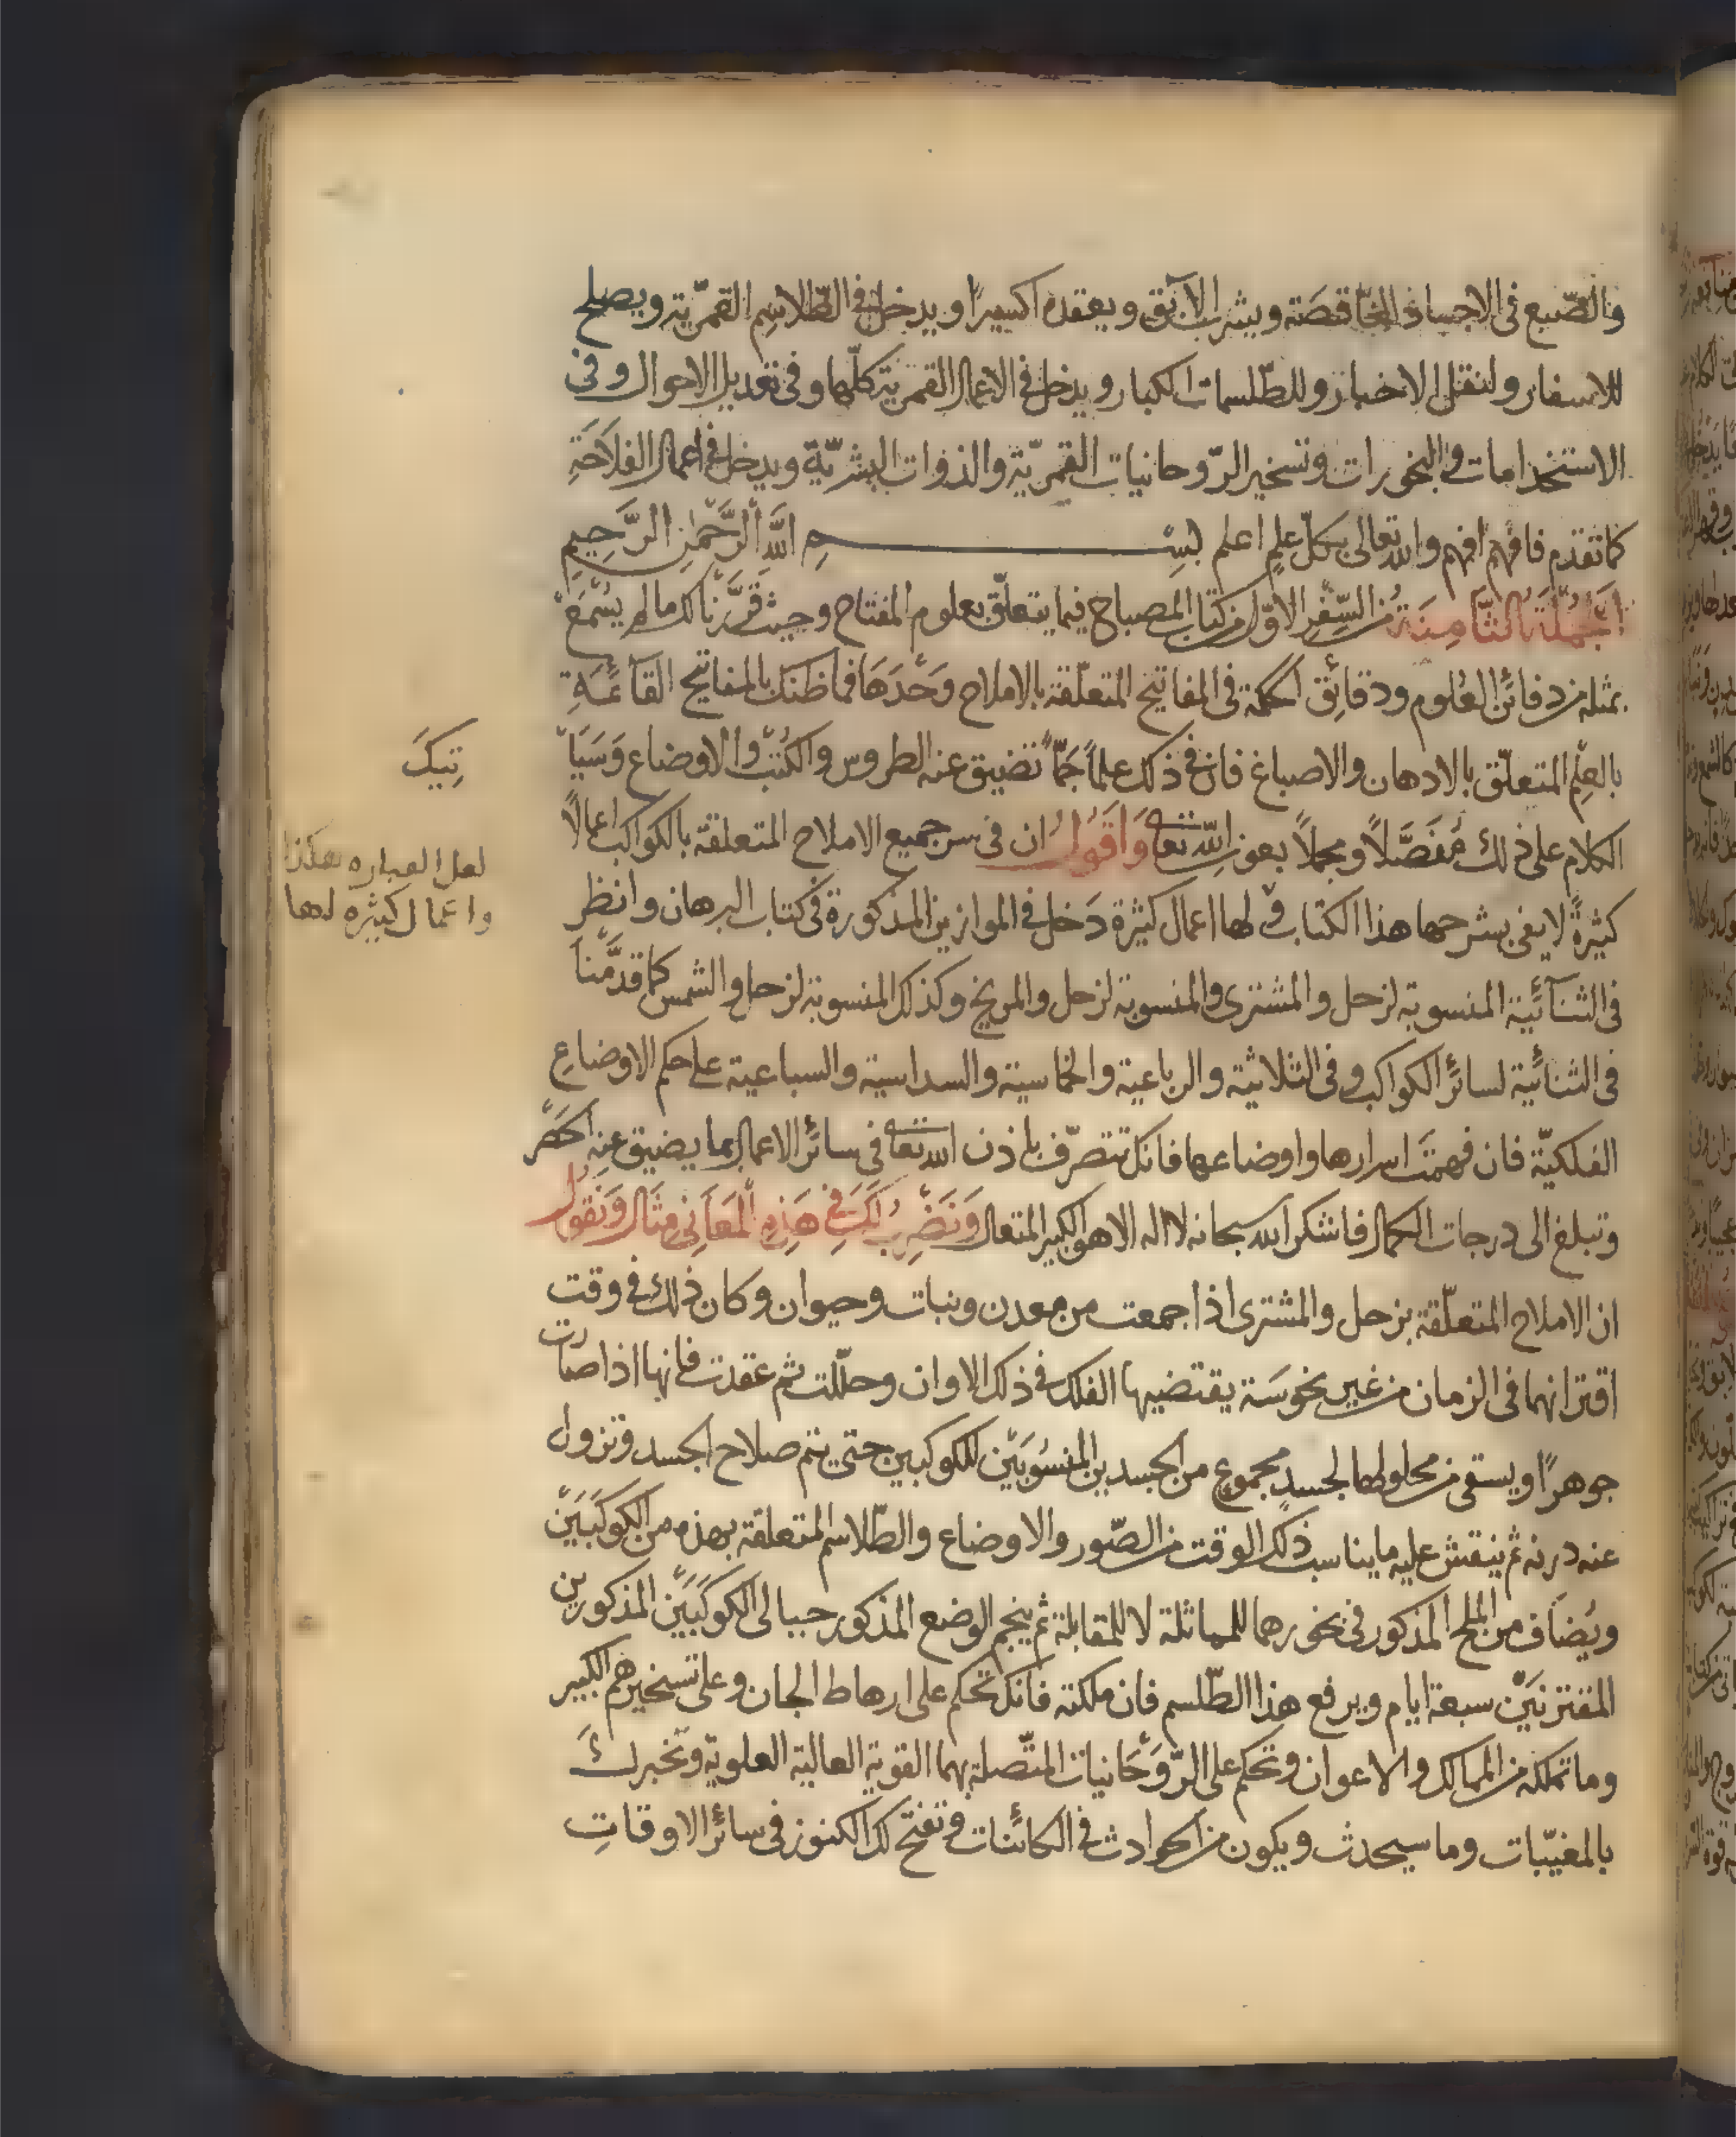 والصبغ فى الاجساد الناقصة ويشرب الآبق ويعقده اكسيرًا ويدخل فى الطّلاسِم القمرّية ويصلح
للاسفار ولنقل الاخبار وللطّلسمات الكبار ويدخل فى الاعمال القمرية كلّها وفى تعديل الاحوال وفى
الاستخدامات والبخورات وتسخير الرّوحانيات القمرّية والذوات البشرّية ويدخل فى اعمال الفِلَاحَةِ
كما تقدم فافهم افهم والله تعالى بكلّ علمٍ اعلم بِسْمِ اللَّهِ الرَّحْمٰنِ الرَّحِيمِ
اَلجُمْلَةُ الثَّامِنَةُ من السِّفْر الاوّل من كتاب المصباح فيما يتعلّق بعلوم المفتاح وحيث قرَّرْنا لك ما لم يُسْمَعْ
بمثله من دفائن العُلوم ودقائق الحكمة فى المفاتيح المتعلّقة بالاملاح وَحْدَهَا فما ظنك بالمفاتيح القآئمَةِ
بالعِلْم المتعلّق بالادهان والاصباغ فان فى ذلك علماً جَمّاً تضيق عنه الطروس والكُتُبْ والاوضاع وَسَيَأْ
تِيكَ
الكلام على ذلك مُفَصَّلاً ومجملاً بعون الله تعا وَاَقُولُ ان فى سر جميع الاملاح المتعلقة بالكواكب اعمالاً
كثيرةً لا يفى بشرحها هذا الكتاب ولها اعمال كثيرة دَخل فى الموازين المذكورة فى كتاب البرهان وانظر
لعل العباره هكذا
واعمال كثيره لها
فى الثنآئية المنسوبة لزحل والمشترى والمنسوبة لزحل والمريخ وكذلك المنسوبة لزحل والشمس كما قدّمنا
فى الثنائية لسائر الكواكب وفى الثلاثية والرباعية والخماسية والسداسية والسباعية على حكم الاوضاعِ
الفلكيّة فان فهمتَ اسرارها واوضاعها فانك تتصرّف باذن الله تعا فى سائر الاعمال بما يضيق عنه الحَصْر
وتبلغ الى درجات الكمال فاشكر الله سبحانه لا اله الا هو الكبير المتعال وَنَضْرِبُ لَكَ فِى هَذِهِ الْمَعَانِى مِثَال وَنَقُولُ
ان الاملاح المتعلّقة بزحل والمشترى اذا جمعت من معدن ونبات وحيوان وكان ذلك فى وقت
اقترانهما فى الزمان من غير نحوسَة يقتضيها الفلك فى ذلك الاوان وحلّلت ثم عقدت فانها اذا صارت
جوهرًا ويسقى من محلولها لجسدٍ مجموع من الجسدين المنسُوبَيْن للكوكبين حتى يتم صلاح الجسد وتزول
عنه درنه ثم ينقش عليه ما يناسب ذلك الوقت من الصّور والاوضاع والطّلاسم المتعلقة بهذه من الكَوكَبَيْن
ويُضَاف من الملح المذكور فى بخورهما للمماثلة لا للمقابلة ثم ينجم الوضع المذكور حيالى الكَوكَبَيْن المذكورين
المقترنَيْن سبعة ايام ويرفع هذا الطّلسم فان ملكته فانك تحكم على ارهاط الجان وعلى تسخيرهم الكبير
وما تملكه من الممالك والاعوان وتحكم على الرّوحَانيات المتّصلة بهما القوية العالية العلوية وتخبرك
بالمغيّبات وما سيحدث ويكون من الحوادث فى الكائنات وتفتح لك الكنوز فى سائر الاوقاتِ